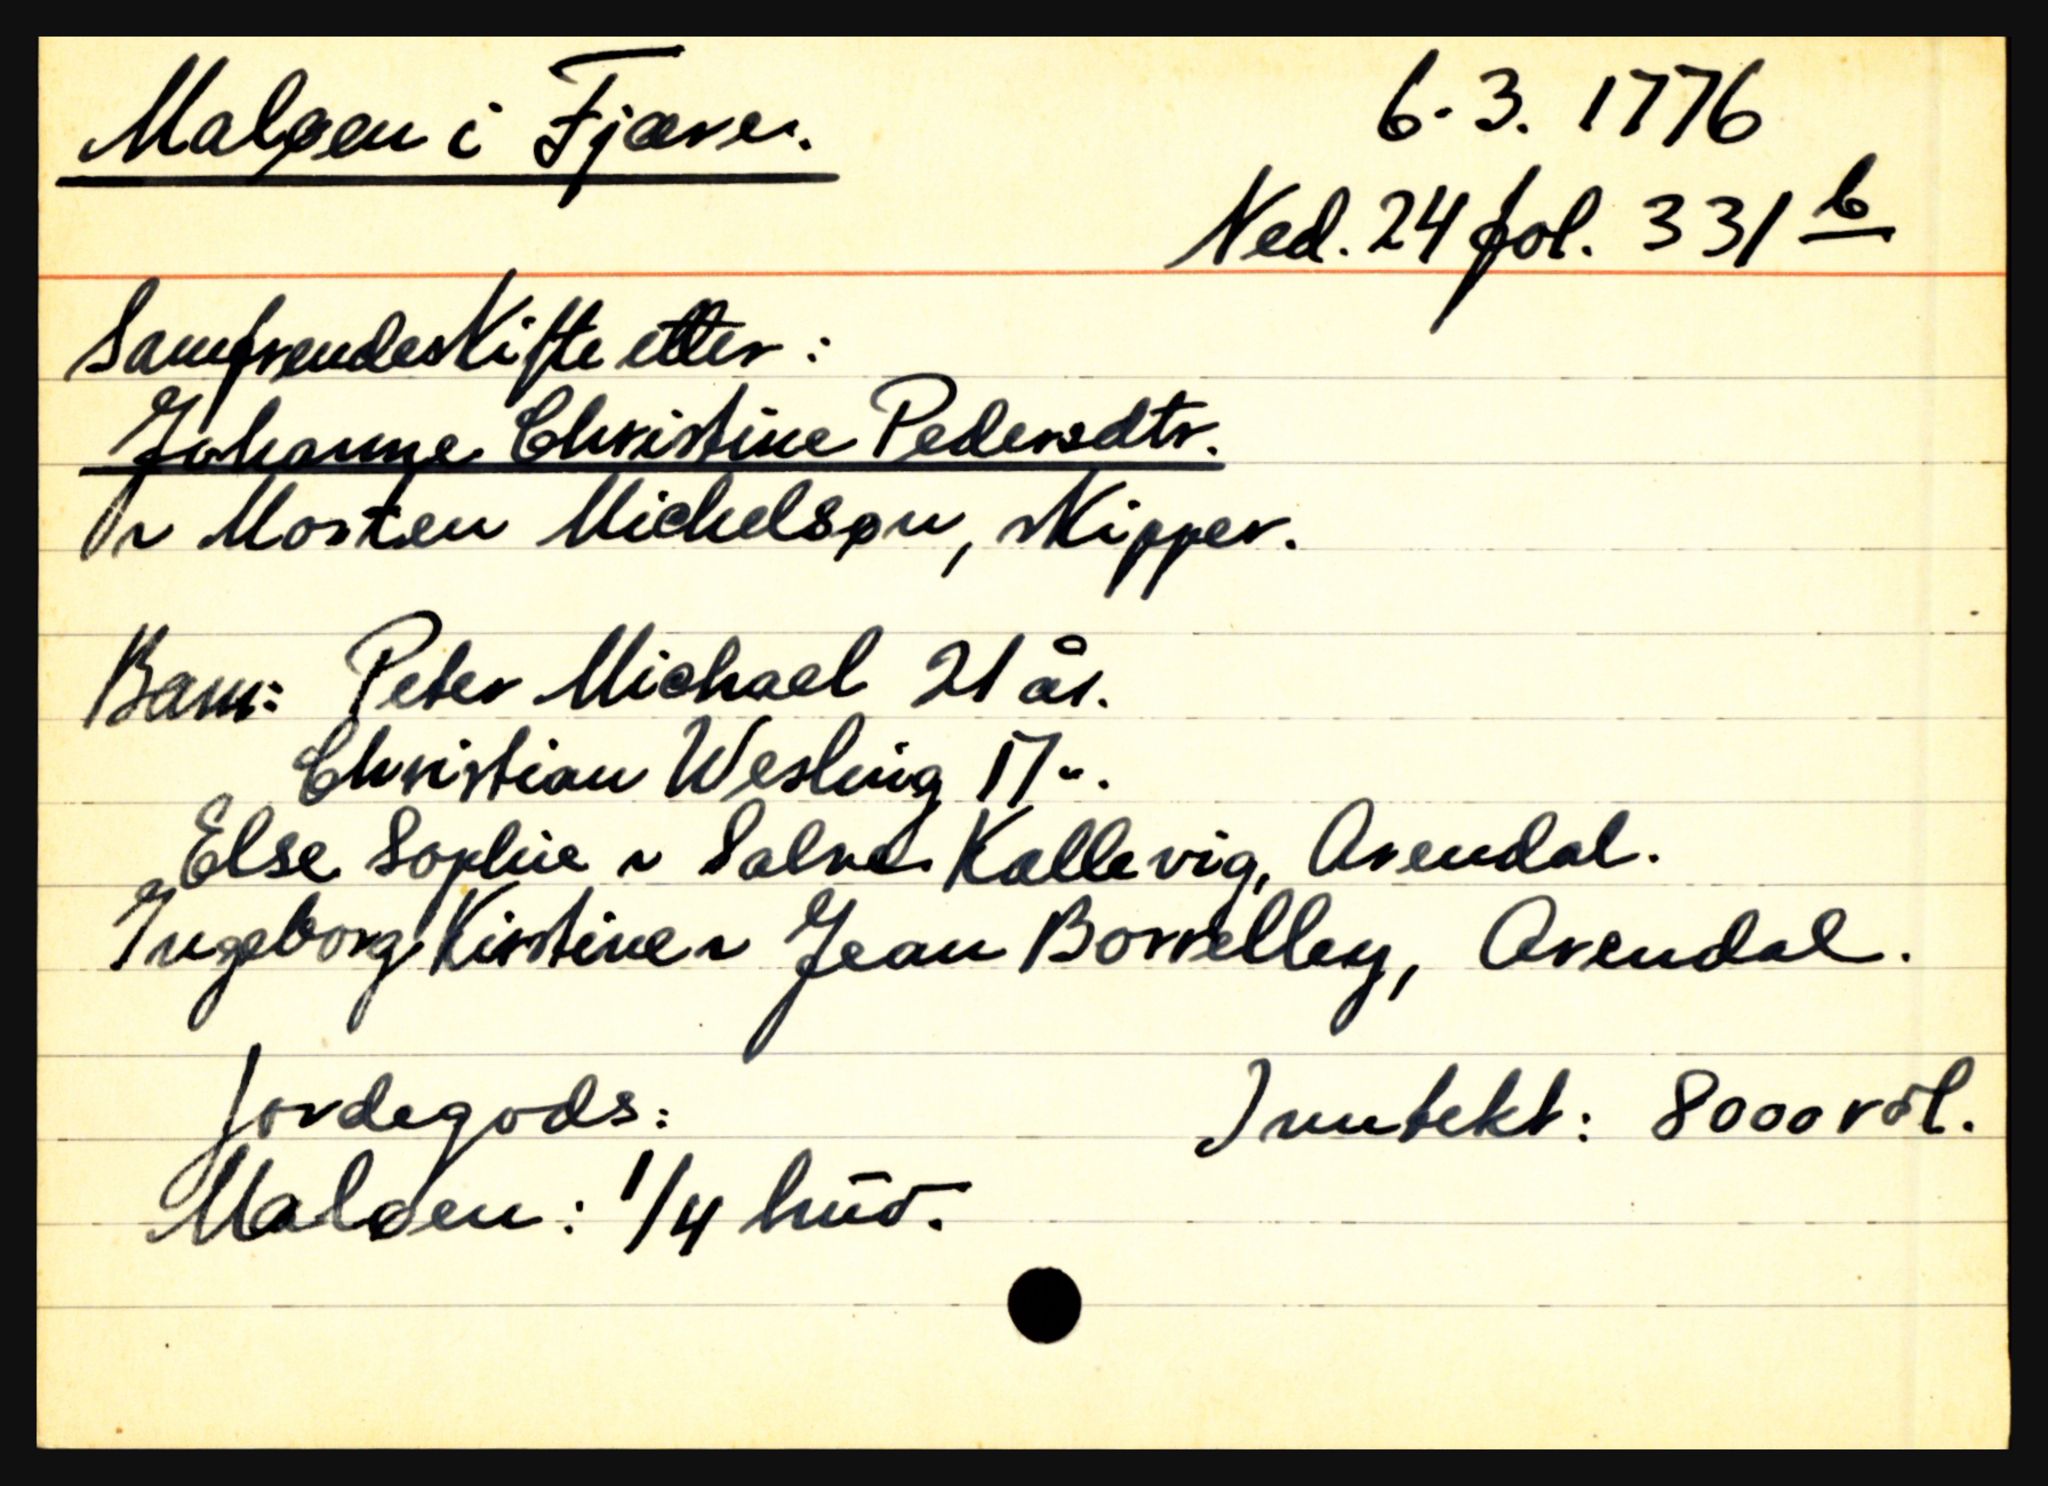 Maløen i Fjære.
6-3. 1776
Ned. 24 fol. 331 b
Samfrendeskifte etter:
Johanne Christine Pedersdtr.
~ Morten Michelsøn, skipper.
Barn: Peter Michael 21 år.
Christian Wesling 17 ".
Else Sophie ~ Salve Kallevig, Arendal.
Ingeborg Kirstine ~ Jean Borrelley, Arendal.
Jordegods:
Inntekt: 8000 rdl.
Maløen: 1/4 hud.